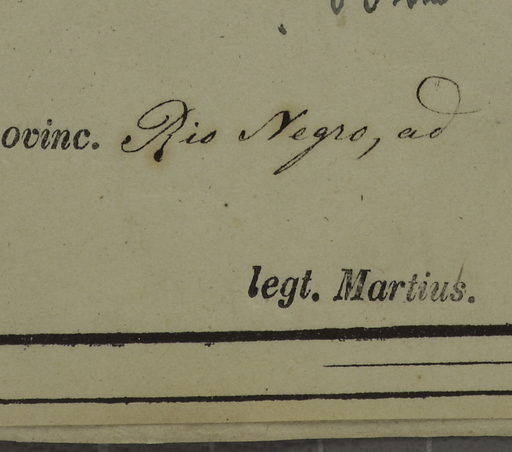 ovinc. Rio Negro, ad
legt. Martius.